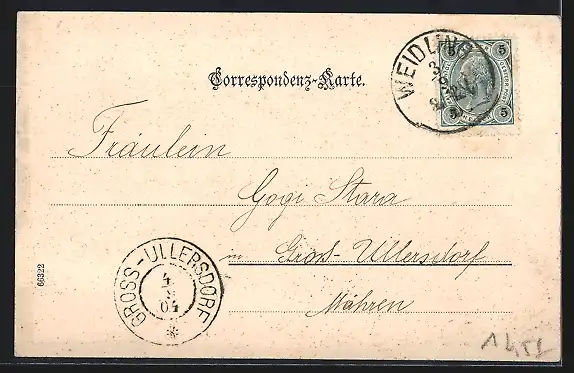 Correspondenz-Karte.
WEIDLING
3
9
5 5
5 5
Fräulein
Gogi Stara
in Gross-Ullersdorf
Mähren
GROSS-ULLERSDORF
4
9
04
66322